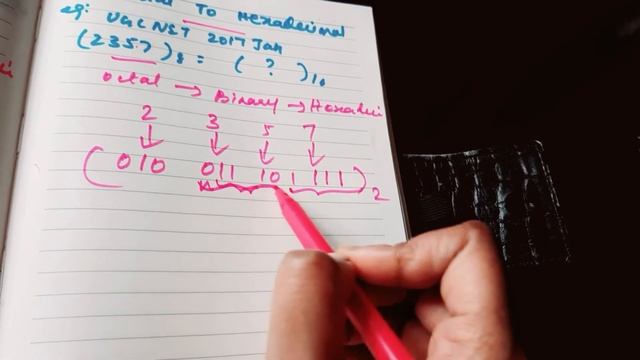 eg: To Hexadecimal
UGC NET 2017 Jan
(2357)8 = ( ? )16
Octal → Binary → Hexadeci
2 3 5 7
(010 011 101 111)2